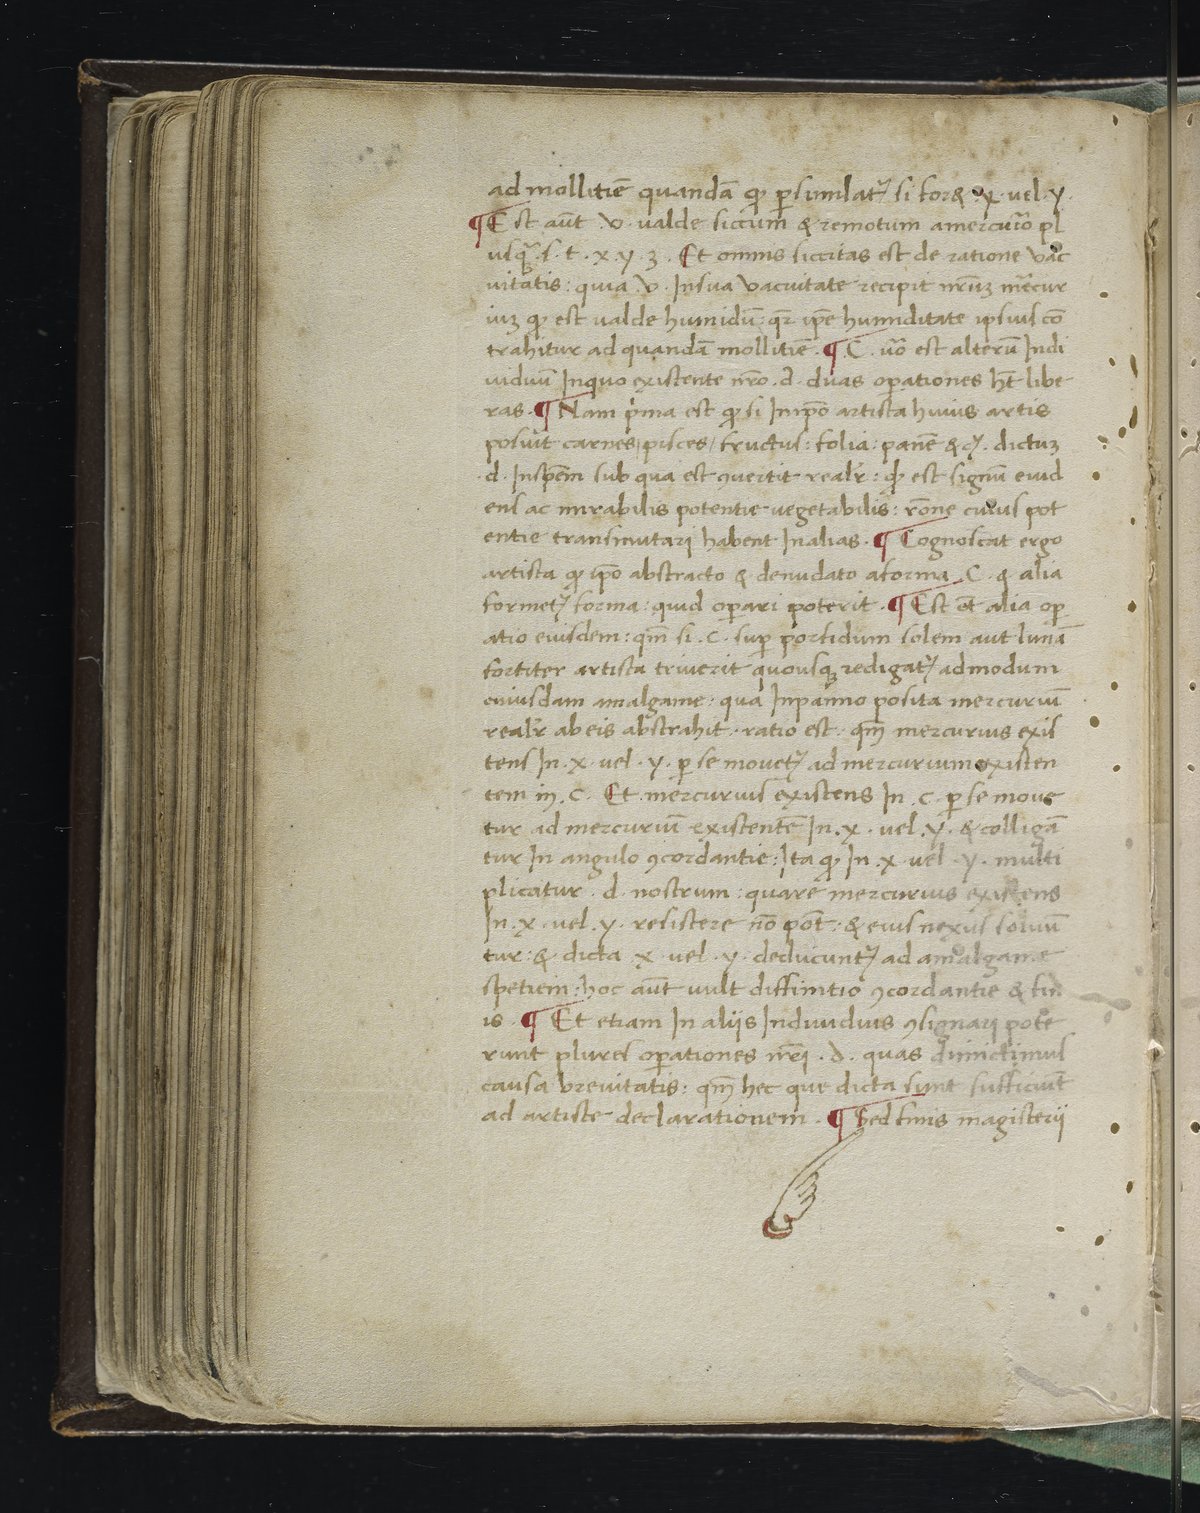 ad mollitiē quandā ꝙ ꝑsimilatꝛ̉ si for& ·x· uel·y·
¶ Est aūt ·v· ualde siccum & remotum amercur̄io pl
usq̄ꝫ ·s· t · x · y · z · Et omnis siccitas est de ratione vac
uitatis : quia v · Insua vacuitate recipit nr̄uꝫ m̄ercur
iuꝫ ꝙ est ualde humidū : qꝛ ip̄e humiditate ipsius co
trahitur ad quandā mollitiē · ¶ C · uō est alterū Indi
uiduū Inquo existente nr̄o · d · duas oꝑationes h̄t libe
ras · ¶ Nam p̄ma est ꝙ si Inip̄o artista huius artis
posuit carnes / pisces / fructus : folia : panē &cꝫ · dictuꝫ
·d· Insp̄em sub qua est ꝯuertit realr̄ : ꝙ est signū euid
ens ac mirabilis potentie uegetabilis : rōne cuius pot
entie transmutari habent Inalias · ¶ Cognoscat ergo
artista ꝙ ip̄o abstracto & denudato aforma C · & alia
formetꝛ̉ forma : quid operari poterit · ¶ Est et̄ alia oꝑ
atio eiusdem : qm̄ si · C · suꝑ porfidum solem aut lunā
fortiter artista triuerit quousqꝫ redigatꝛ̉ admodum
cuiusdam amalgame : qua Inpanno posita mercuriū
realr̄ abeis abstrahit · ratio est : qm̄ mercurius exis
tens In · x · uel · y · ꝑ se mouetꝛ̉ ad mercurium existen
tem in · C · Et mercurius existens In · C · ꝑ se moue
tur ad mercuriū existentē In · x · uel · y · & colligā
tur In angulo ꝯcordantie : Ita ꝙ In · x · uel · y · multi
plicatur · d · nostrum : quare mercurius existens
In · x · uel · y · resistere nō pōt : & eius nexus soluū
tur : & dicta · x · uel · y · deducuntꝛ̉ ad amalgame
spetiem : hoc aūt uult diffinitio ꝯcordantie & fin
is · ¶ Et etiam In aliis Indiuiduis ꝯsignari pote
runt plures oꝑationes nr̄i · d · quas dimictimus
causa breuitatis : qm̄ hec que dicta sunt sufficiūt
ad artiste declarationem · ¶ Sed finis magisterii